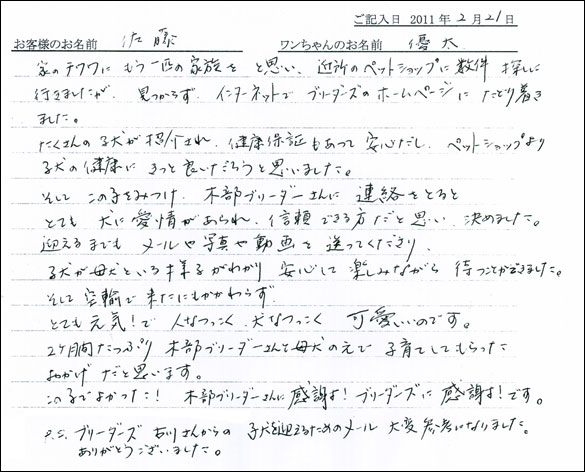 ご記入日 2011年2月21日
お客様のお名前 佐藤 ワンちゃんのお名前 優太
家のチワワにもう一匹の家族をと思い、近所のペットショップに数件探しに
行きましたが、見つからず、インターネットでブリーダーズのホームページにたどり着き
ました。
たくさんの子犬が紹介され、健康保証もあって安心だし、ペットショップより
子犬の健康にきっと良いだろうと思いました。
そしてこの子をみつけ、木部ブリーダーさんに連絡をとると
とても犬に愛情があられ、信頼できる方だと思い、決めました。
迎えるまでも メールや写真や動画を送ってくださり、
子犬が母犬といる様子がわかり 安心して楽しみながら待つことができました。
そして空輸で来たにもかかわらず
とても元気!で 人なつっこく、犬なつっこく 可愛いいのです。
2ヶ月間たっぷり 木部ブリーダーさんと母犬の元で子育てしてもらった
おかげだと思います。
この子でよかった!木部ブリーダーさんに感謝よ!ブリーダーズに感謝よ!です。
P.S. ブリーダーズ 古川さんからの子犬を迎えるためのメール 大変参考になりました。
ありがとうございました。